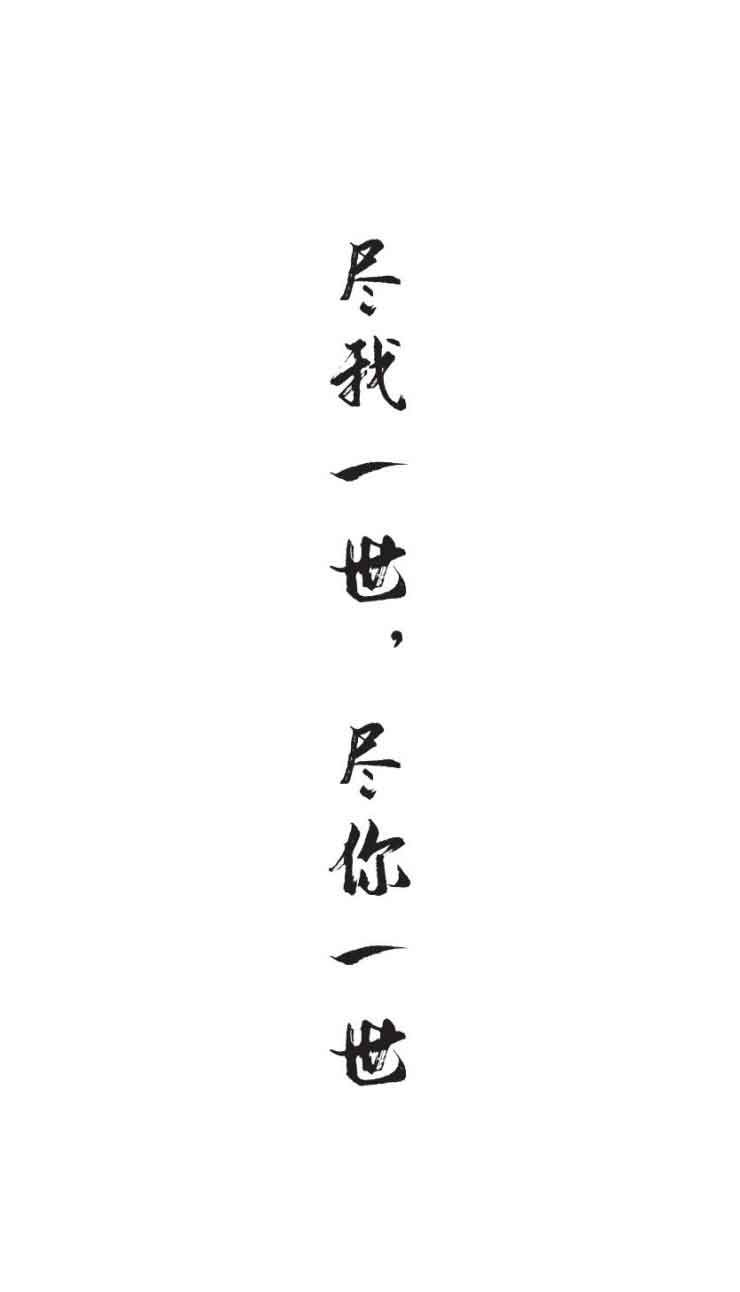 尽我一世，尽你一世